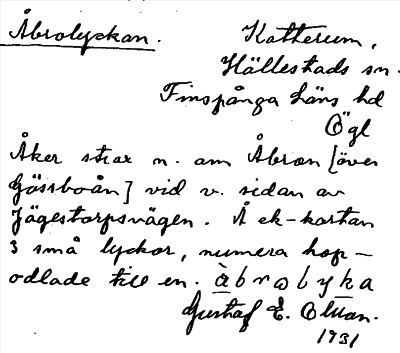 Åbrolyckan. Katterum,
Hällestads sn.
Finspånga läns hd
Ögl
Åker strax n. om Åbron [över
Gössboån] vid v. sidan av
Jägestorpsvägen. Å ek-kartan
3 små lyckor, numera hop-
odlade till en. åbrolyka
Gustaf E.
1931